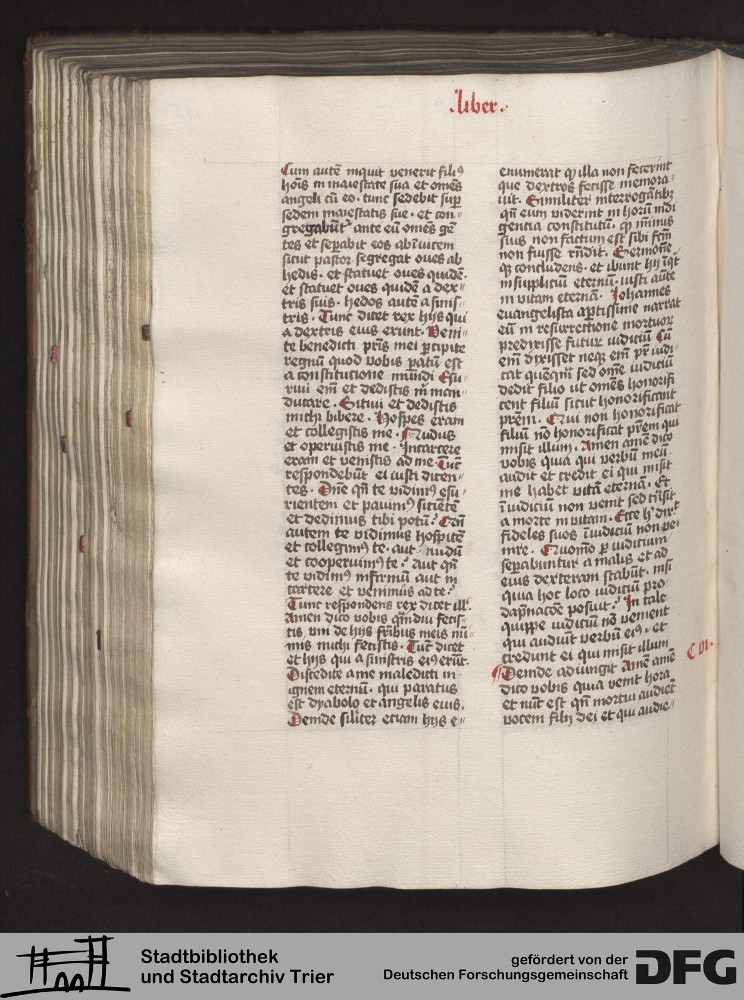 .liber.
Cum autē inquit venerit filiꝰ
hoīs in maiestate sua et omēs
angeli cū eo. tunc sedebit suꝑ
sedem maiestatis sue. et con〃
gregabūt᷑ ante eū omēs gē〃
tes et seꝑabit eos abinuicem
sicut pastor segregat oues ab
hedis. et statuet oues quidē.
et statuet oues quidē a dex〃
tris suis. hedos autē a sinis〃
tris. Tunc dicet rex hijs qui
a dextris eius erunt. Veni〃
te benedicti pr̄is mei ꝑcipite
regnū quod vobis paratū est
a constitucione mundi Esu〃
riui em̄ et dedistis m̄ man〃
ducare. Sitiui et dedistis
michi bibere. Hospes eram
et collegistis me. Nudus
et operuistis me. Incarcere
eram et venistis ad me. Tūc
respondebūt ei iusti dicen〃
tes. Dn̄e qn̄ te vidimꝰ esu〃
rientem et pauimꝰ sicientē
et dedimus tibi potū? Qn̄
autem te vidimus hospitē
et collegimꝰ te. aut nudū
et cooperuimꝰ te? Aut qn̄
te vidimꝰ infirmū aut in
carcere et venimus ad te?
Tunc respondens rex dicet ill᷑.
Amen dico vobis qm̄diu fecis〃
tis vni de hijs fr̄ibus meis mi〃
nimis michi fecistis. Tūc dicet
et hijs qui a sinistris eiꝰ erūt.
Discedite a me maledicti in
ignem eternū. qui paratus
est dyabolo et angelis eius.
Deinde siliter eciam hijs e〃
enumerat qꝫ illa non fecerint
que dextros fecisse memora〃
uit. Similiter interrogātibꝫ
qn̄ eum viderint in horū indi〃
gencia constitutū. qꝫ minimis
suis non factum est sibi fc̄m
non fuisse rn̄dit. Sermonē〃
qꝫ concludens. et ibunt hij īqt
in suppliciū eternū. iusti autē
in vitam eternā. Johannes
euangelista aptissime narrat
eū in resurrectione mortuoꝝ
predixisse futurū iudiciū Cū
em̄ dixisset neqꝫ em̄ pr̄ iudi〃
cat quēqm̄ sed omē iudiciū
dedit filio ut omēs honorifi〃
cent filiū sicut honorificant
prēm. Qui non honorificat
filiū nō honorificat prēm qui
misit illum. Amen amē dico
vobis quia qui verbū meū
audit et credit ei qui misit
me habet vitā eternā. Et
ī iudiciū non venit sed trāsit
a morte in vitam. Ecce h̄ dixit
fideles suos ī iudiciū non ve〃
nire. Quomō ꝑ iudicium
seꝑabuntur a malis et ad
eius dexteram stabūt. nisi
quia hoc loco iudiciū pro
dāpnacōe posuit? In tale
quippe iudiciū nō venient
qui audiūt verbū eiꝰ. et
credunt ei qui misit illum
C VI.
Deinde adiungit Amē amē
dico vobis quia venit hora
et nūc est qn̄ mortui audiēt
vocem filij dei et qui audie〃
Stadtbibliothek
und Stadtarchiv Trier
gefördert von der
Deutschen Forschungsgemeinschaft
DFG